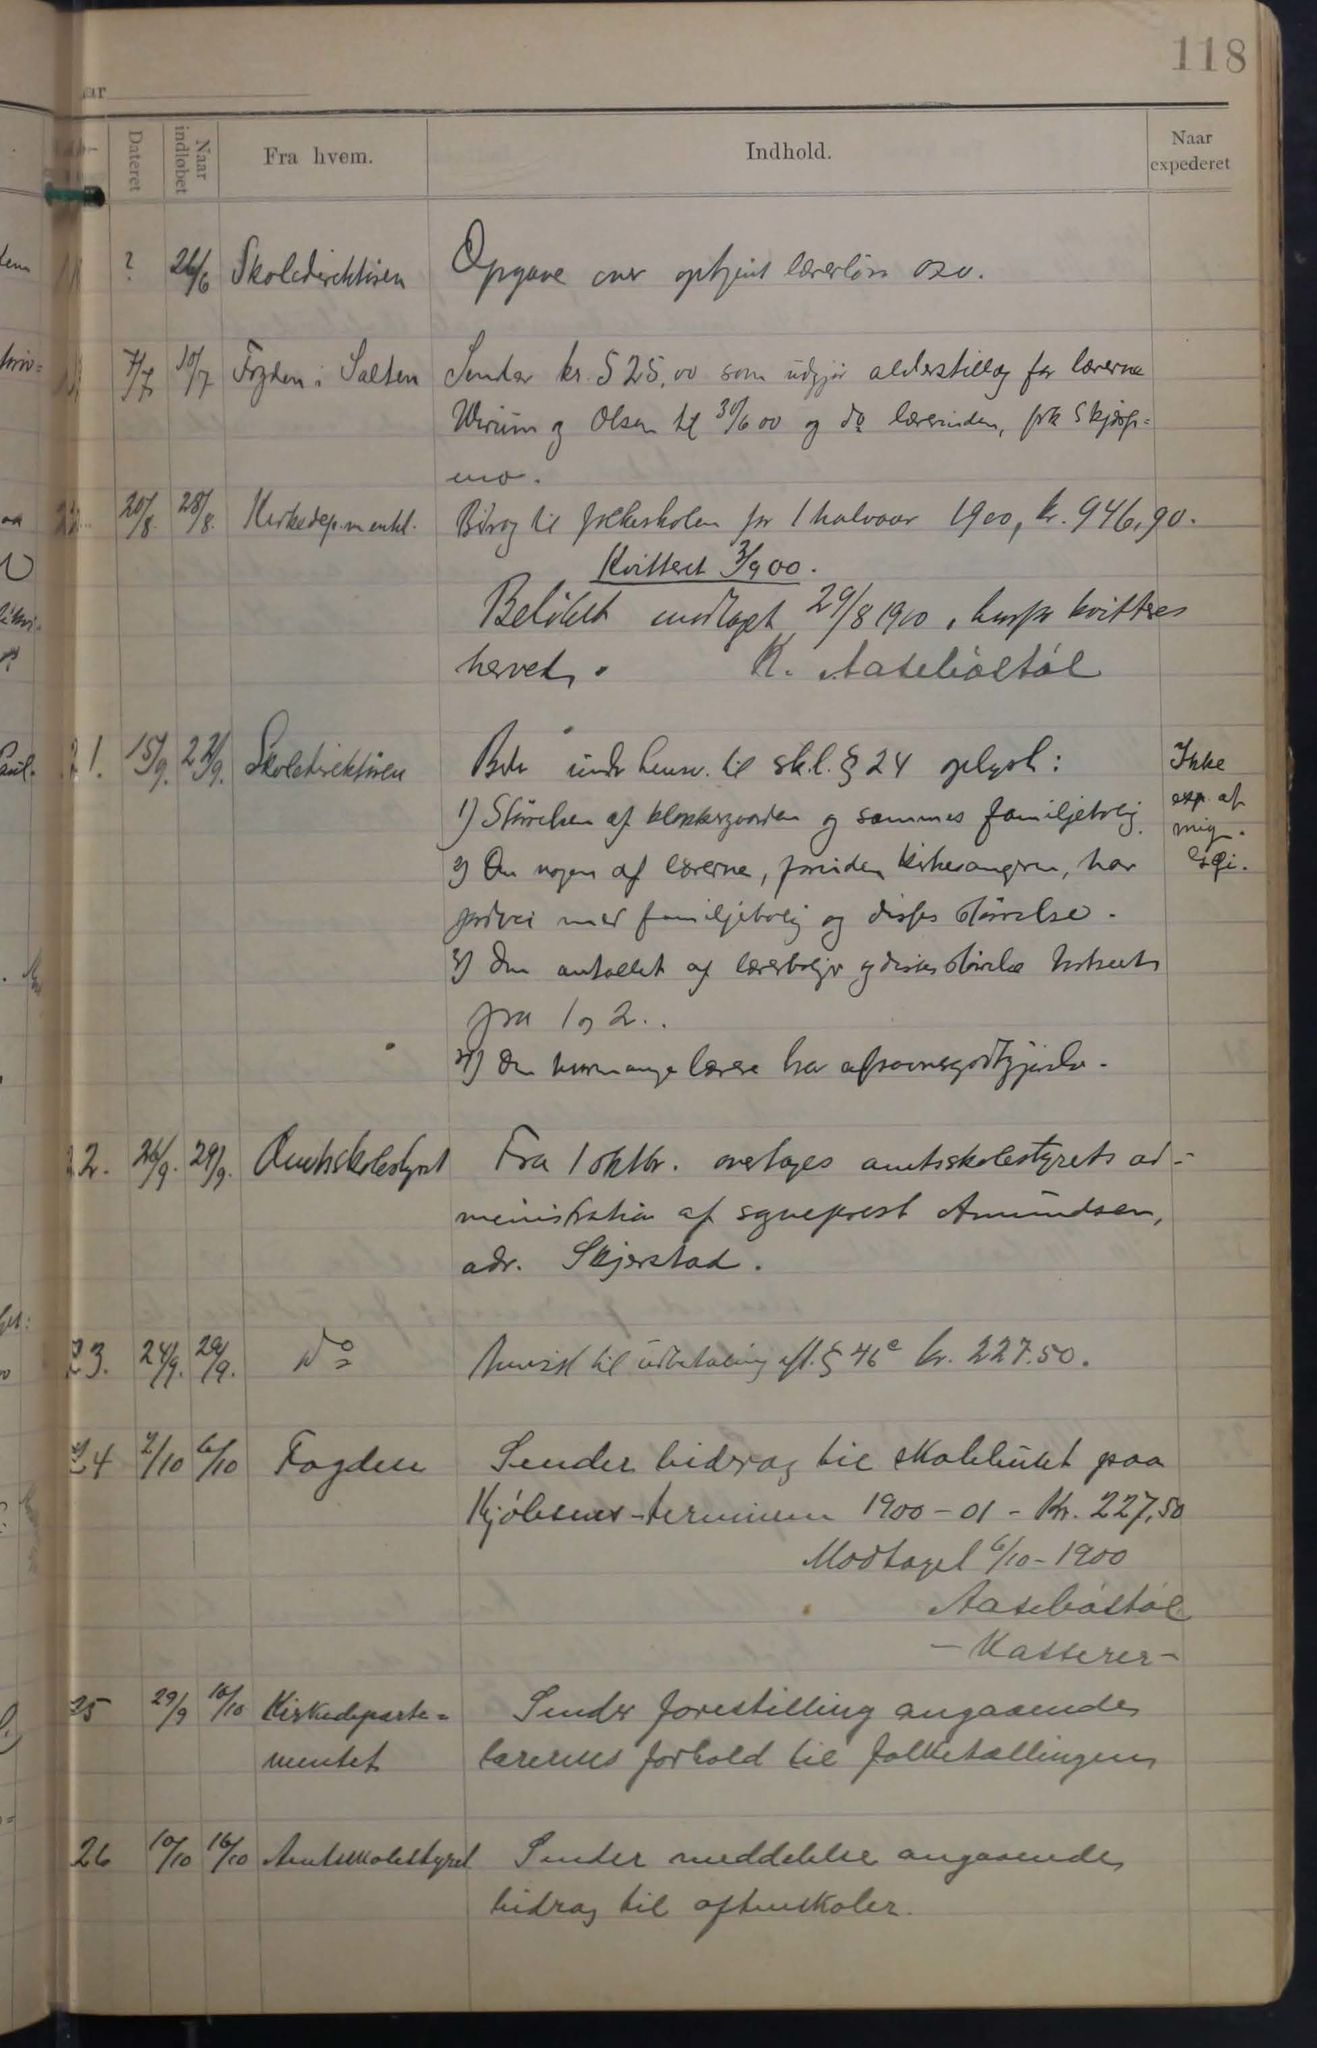 118
ar
Dateret
Naar indløbet
Fra hvem.
Indhold.
Naar expederet
? 26/6 Skoledirektøren Opgave over optjent lærerløn osv.
7/7 10/7 Fogden i Salten Sender kr. 525,00 som udgjør alderstillæg for lærerne
Wirum og Olsen til 30/6 00 og do lærerinden, frk Skjævs=
mo.
20/8. 28/8. Kirkedep.mentet. Bidrag til folkeskolen for 1 halvaar 1900, kr. 946,90.
Kvitteret 3/9 00.
Beløbet modtaget 29/8 1900, hvorfor kvitteres
herved. K. Aasebøstøl
21. 15/9. 22/9. Skoledirektøren Beder under henv. til sk.l. § 24 oplyst:
1) Størrelsen af klokkergaarden og sammes familjebolig.
2) Om nogen af lærerne, foruden kirkesangeren, har
jordvei med familjebolig og disses størrelse.
3) Om antallet af lærerboliger og disses størrelse
fra 1 og 2..
4) Om hvormange lærere har afsavnsgodtgjørelse.
Ikke
exp. af
mig.
22. 26/9. 29/9. Amtsskolestyret Fra 1 oktbr. overtages amtsskolestyrets ad-
ministration af sogneprest Amundsen,
adr. Skjerstad.
23. 24/9. 29/9. do Anvist til udbetaling eft. § 46 e kr. 227.50.
24 2/10 6/10 Fogden Sender bidrag til skolehuset paa
Kjøbsnes-terminen 1900-01 - Kr. 227,50
Modtaget 6/10-1900
Aasebøstøl
- Kasserer -
25 29/9 10/10 Kirkedeparte= Sender forestilling angaaende
mentet lærernes forhold til folketællingen
26 10/10 16/10 Amtsskolestyret Sender meddelelse angaaende
bidrag til aftenskoler.